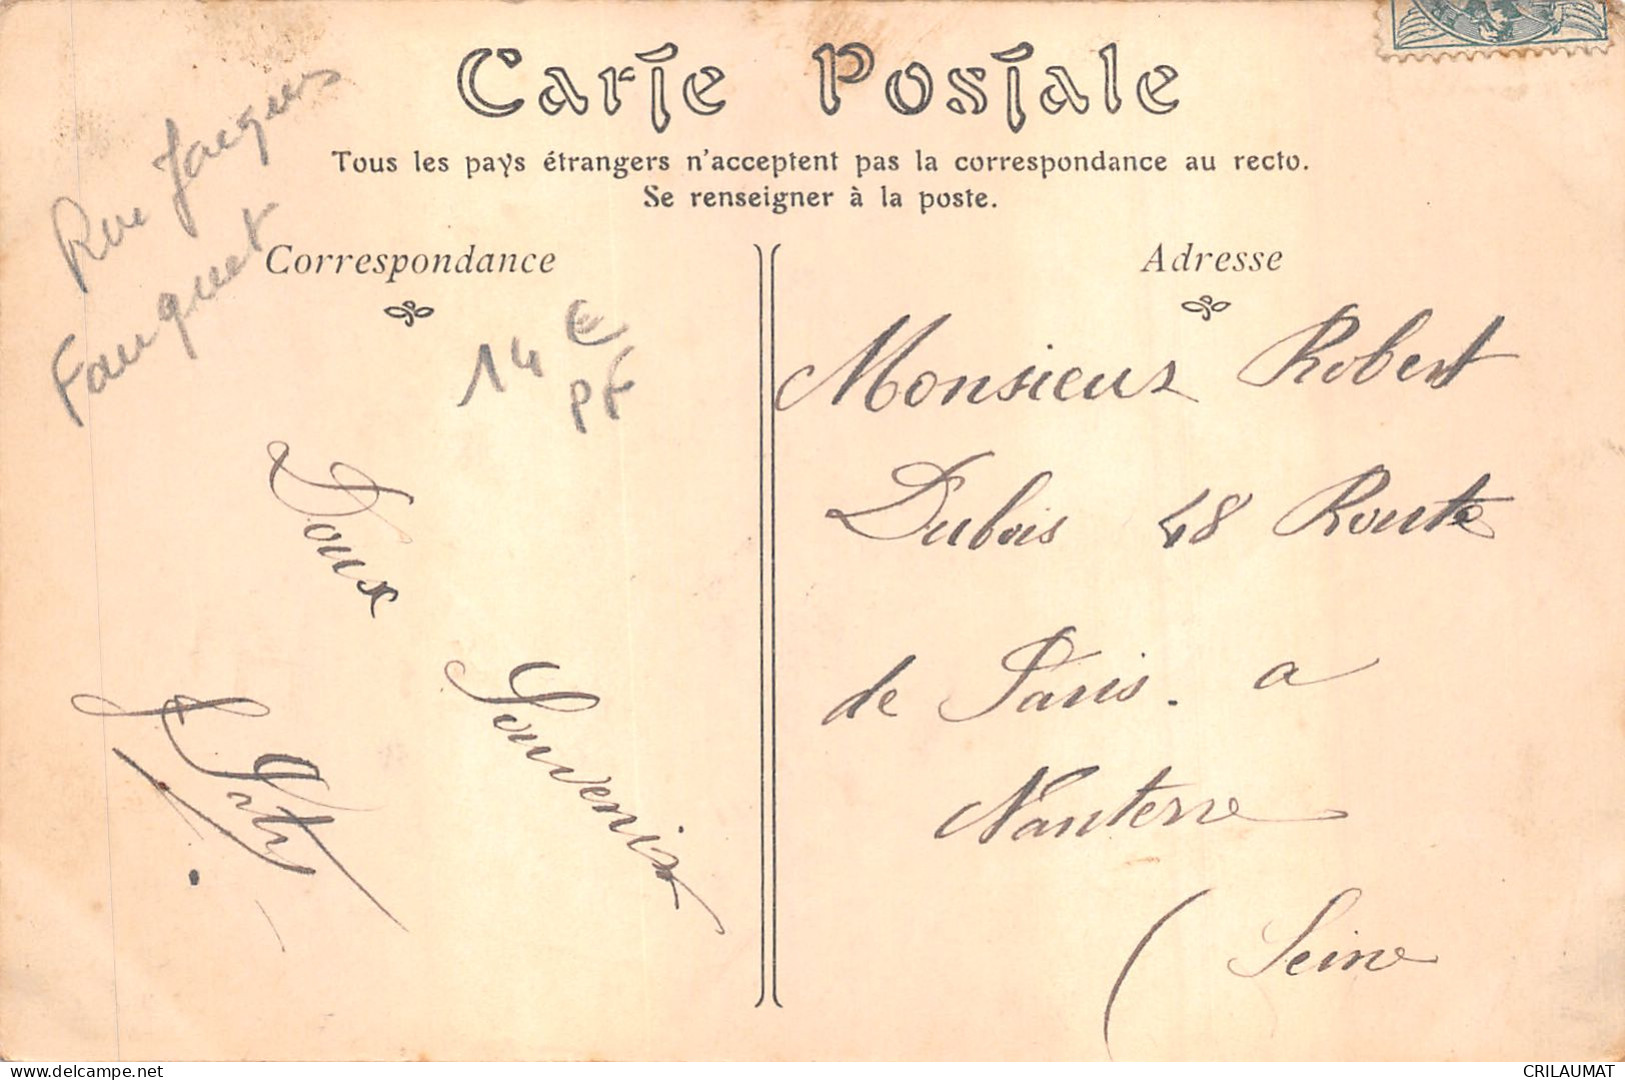 Carte Postale
Tous les pays étrangers n'acceptent pas la correspondance au recto.
Se renseigner à la poste.
Rue Jacques
Fouquet
Correspondance
14 €
PF
Doux
Souvenir
Adresse
Monsieur Robert
Dubois 48 Route
de Paris. a
Nanterre
(Seine
www.delcampe.net
CRILAUMAT